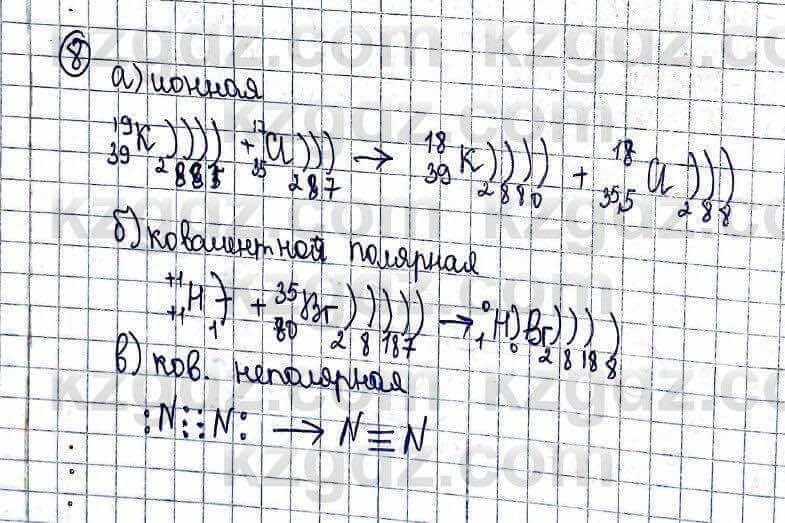 8
а) ионная
19 39 K ) ) ) ) 2 8 8 1 + 17 35 Cl ) ) ) 2 8 7 → 18 39 K ) ) ) ) 2 8 8 0 + 18 35,5 Cl ) ) ) 2 8 8
б) ковалентной полярная
+1 +1 H ) 1 + 35 80 Br ) ) ) ) ) 2 8 18 7 → 0 1 H ) 0 Br ) ) ) ) 2 8 18 8
в) ков. неполярная
:N:::N: → N≡N
kzgdz.com